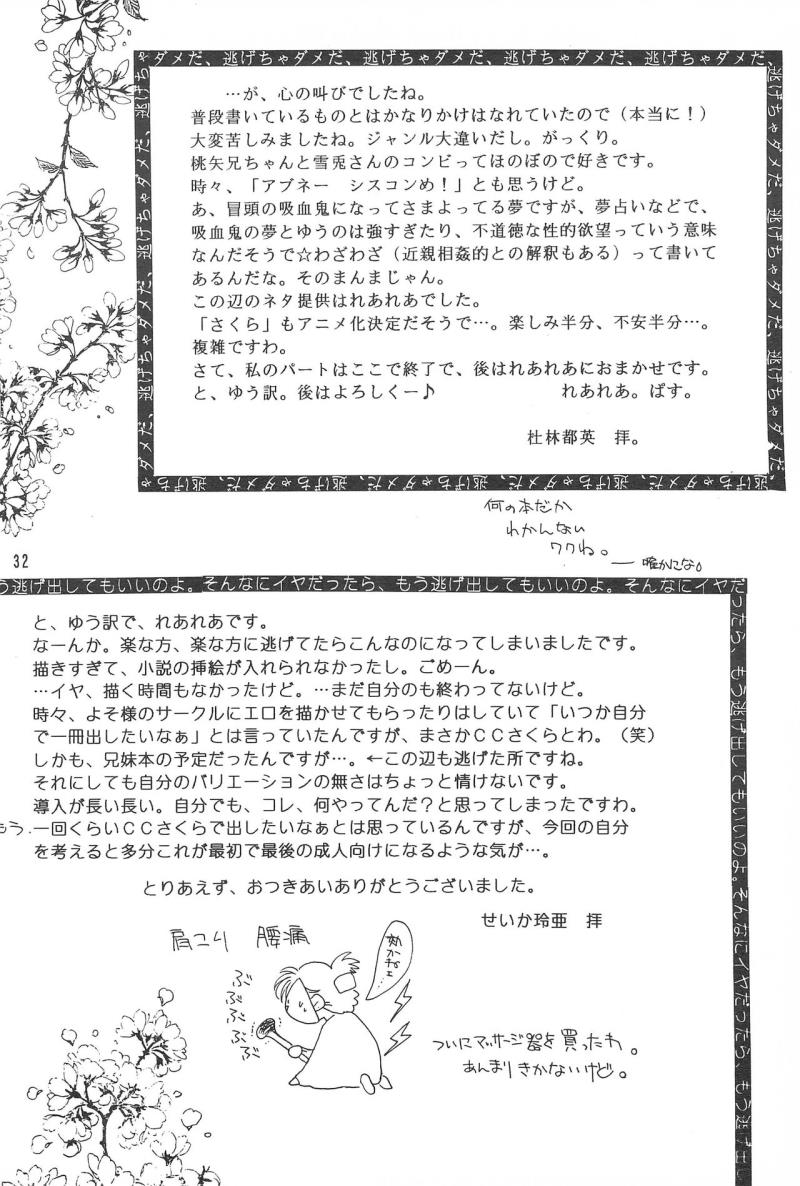 ダメだ、逃げちゃダメだ、逃げちゃダメだ、逃げちゃダメだ、逃げちゃダメだ、
…が、心の叫びでしたね。
普段書いているものとはかなりかけはなれていたので（本当に！）
大変苦しみましたね。ジャンル大違いだし。がっくり。
桃矢兄ちゃんと雪兎さんのコンビってほのぼので好きです。
時々、「アブネー　シスコンめ！」とも思うけど。
あ、冒頭の吸血鬼になってさまよってる夢ですが、夢占いなどで、
吸血鬼の夢とゆうのは強すぎたり、不道徳な性的欲望っていう意味
なんだそうで☆わざわざ（近親相姦的との解釈もある）って書いて
あるんだな。そのまんまじゃん。
この辺のネタ提供はれあれあでした。
「さくら」もアニメ化決定だそうで…。楽しみ半分、不安半分…。
複雑ですわ。
さて、私のパートはここで終了で、後はれあれあにおまかせです。
と、ゆう訳。後はよろしくー♪　れあれあ。ぱす。
杜林都英　拝。
何の本だか
わかんない
ワケね。
32
もう逃げ出してもいいのよ。そんなにイヤだったら、もう逃げ出してもいいのよ。そんなにイヤだったら、もう逃げ出してもいいのよ。そんなにイヤだったら、もう逃げ出し
と、ゆう訳で、れあれあです。
なーんか。楽な方、楽な方に逃げてたらこんなのになってしまいましたです。
描きすぎて、小説の挿絵が入れられなかったし。ごめーん。
…イヤ、描く時間もなかったけど。…まだ自分のも終わってないけど。
時々、よそ様のサークルにエロを描かせてもらったりはしていて「いつか自分
で一冊出したいなぁ」とは言っていたんですが、まさかＣＣさくらとわ。（笑）
しかも、兄妹本の予定だったんですが…。←この辺も逃げた所ですね。
それにしても自分のバリエーションの無さはちょっと情けないです。
導入が長い長い。自分でも、コレ、何やってんだ？と思ってしまったですわ。
もう一回くらいＣＣさくらで出したいなぁとは思っているんですが、今回の自分
を考えると多分これが最初で最後の成人向けになるような気が…。
とりあえず、おつきあいありがとうございました。
せいか玲亜　拝
肩こり　腰痛
ぶぶぶぶぶぶ
ついにマッサージ器を買ったわ。
あんまりきかないけど。